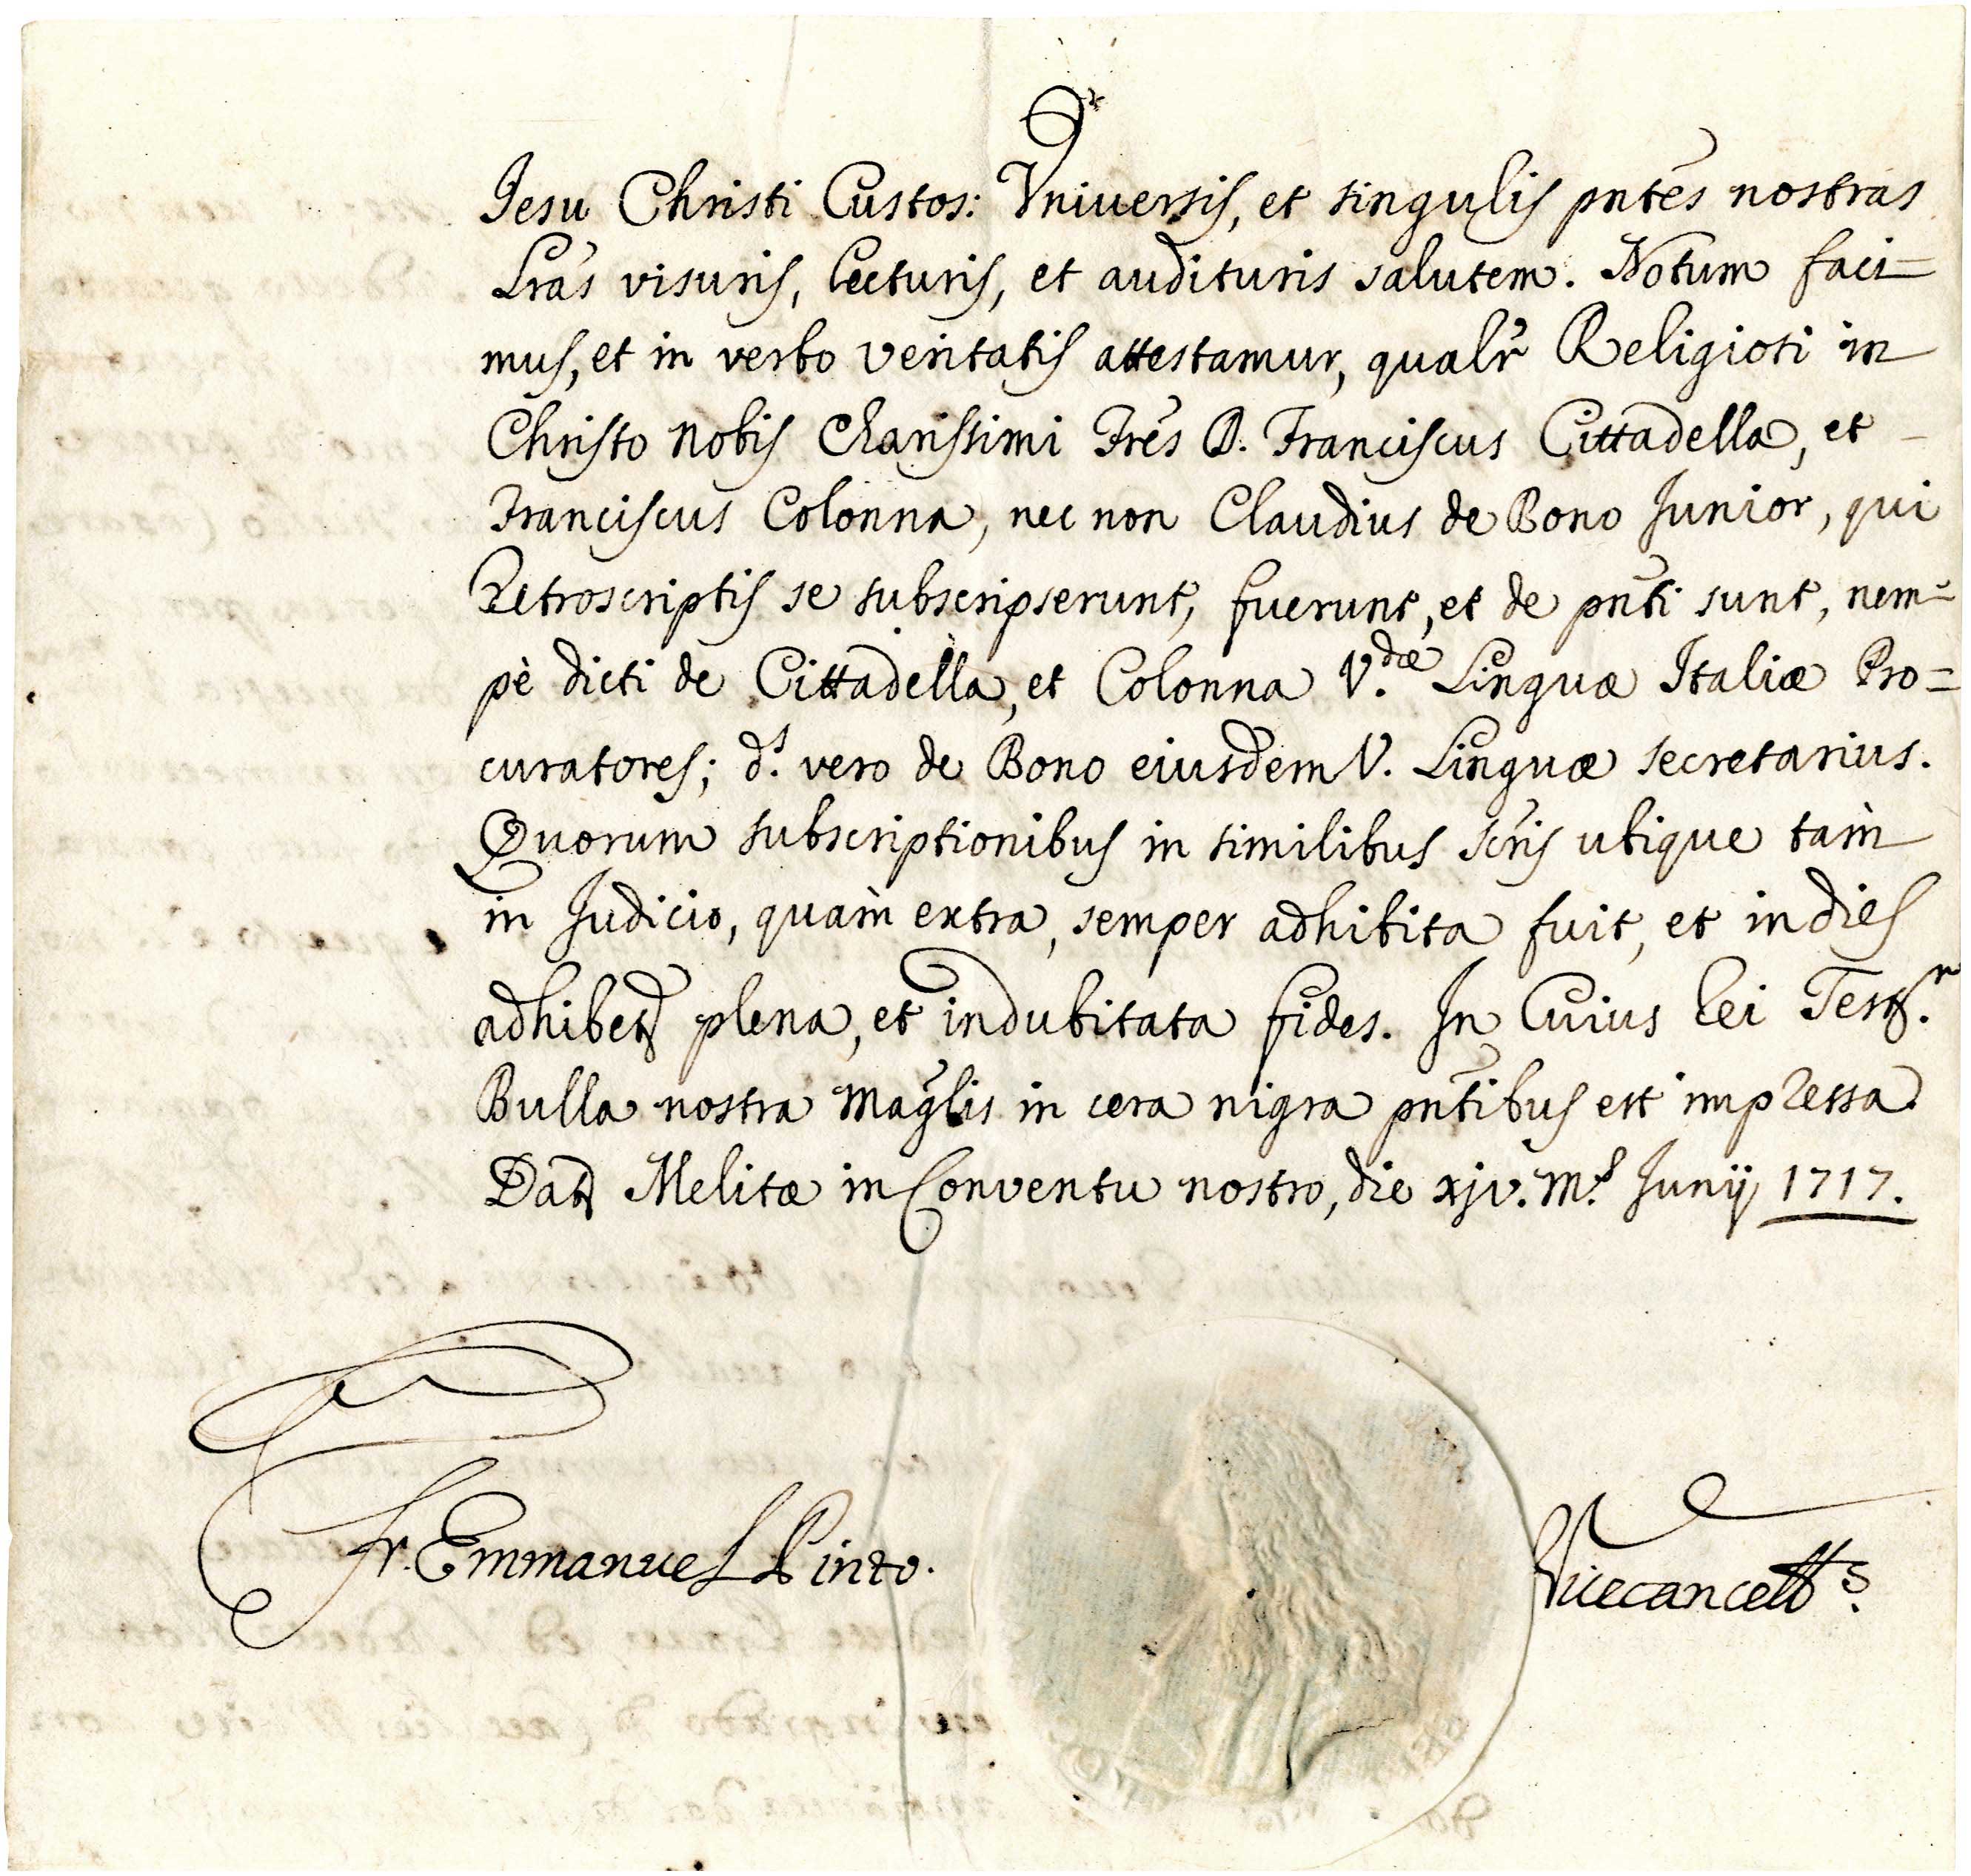 Jesu Christi Custos: Vniuersis, et singulis pntes nostras
Lras visuris, lecturis, et audituris salutem. Notum faci=
mus, et in verbo veritatis attestamur, qualr Religiosi in
Christo nobis Charissimi Fres D. Franciscus Cittadella, et
Franciscus Colonna, nec non Claudius de Bono Junior, qui
Retroscriptis se subscripserunt, fuerunt, et de pnti sunt, nem=
pè dicti de Cittadella, et Colonna V.dæ Linguæ Italiæ Pro=
curatores; d.s vero de Bono eiusdem V. Linguæ secretarius.
Quorum subscriptionibus in similibus scris ubique tàm
in Judicio, quàm extra, semper adhibita fuit, et in dies
adhibet plena, et indubitata fides. In Cuius Rei
Bulla nostra Maglis in cera nigra pntibus est impressa.
Dat Melitæ in Conventu nostro, die xjv. M.s Junij 1717.
Fr. Emmanuel Pinto. Vicecancell.s